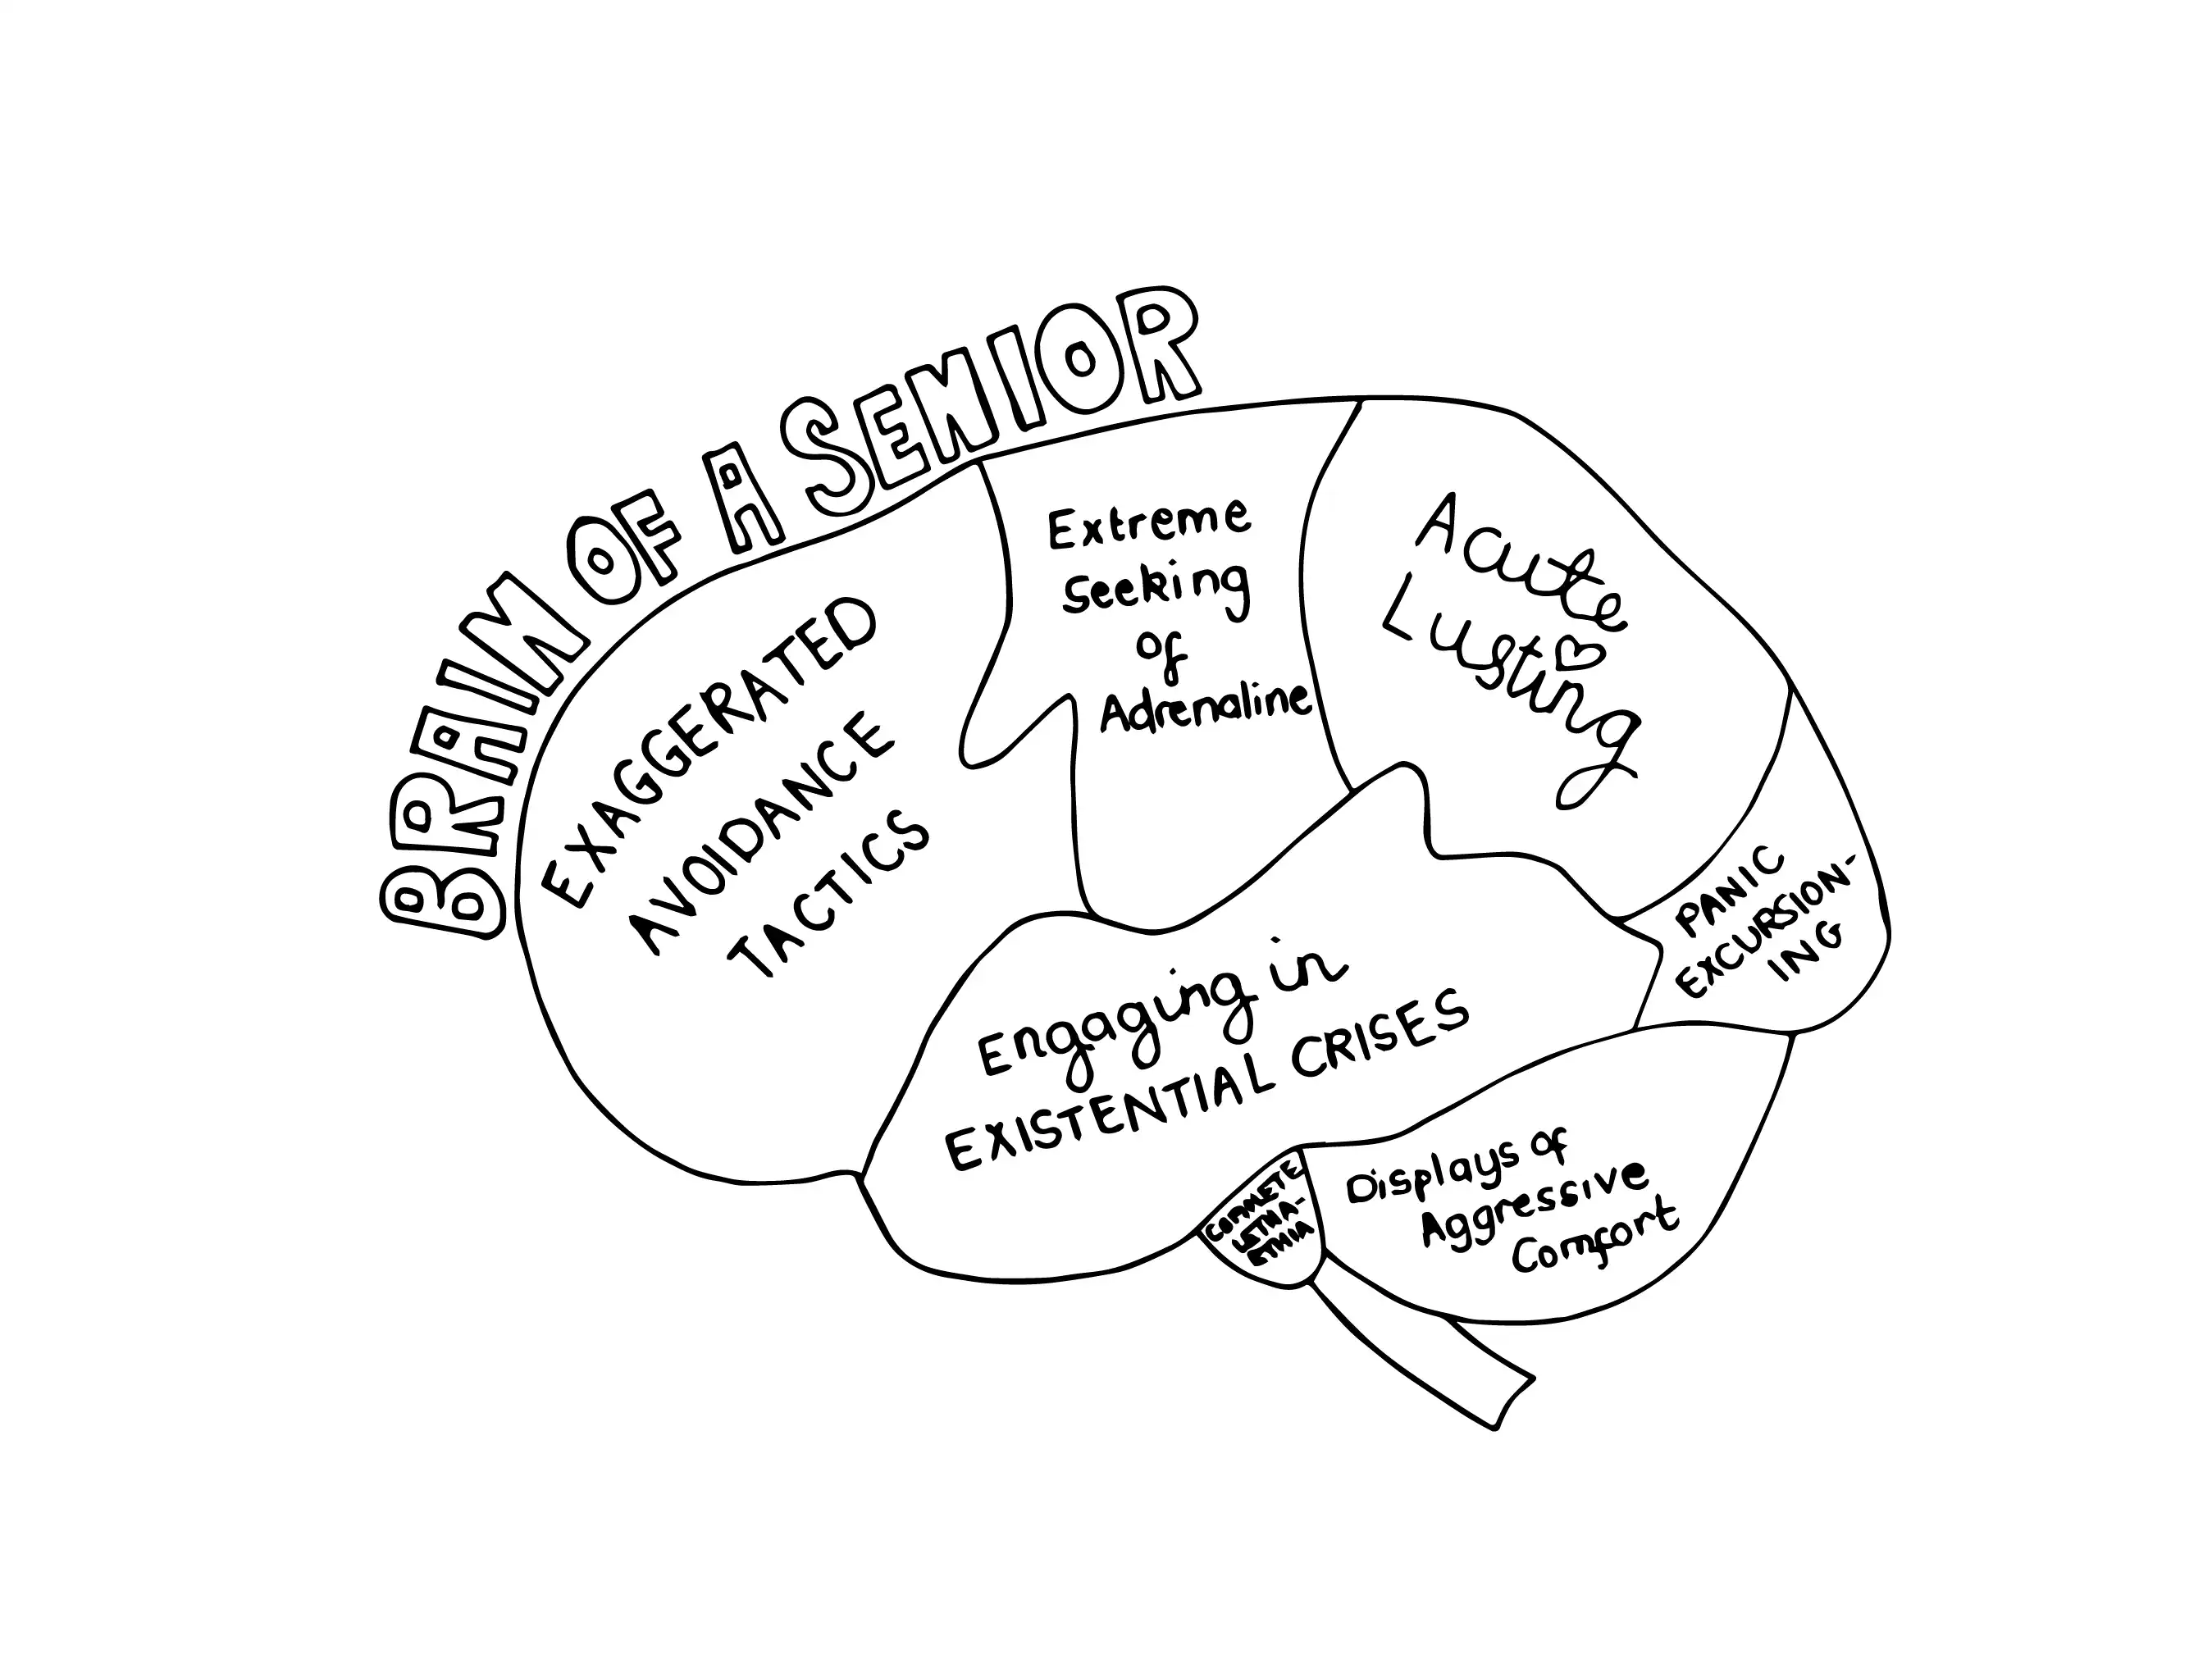 BRAIN OF A SENIOR
EXAGGERATED
AVOIDANCE
TACTICS
Extreme
seeking
of
Adrenaline
Acute
Lusting
PANIC
EXCURSION-
ING
Engaging in
EXISTENTIAL CRISES
Displays of
Aggressive
Comfort